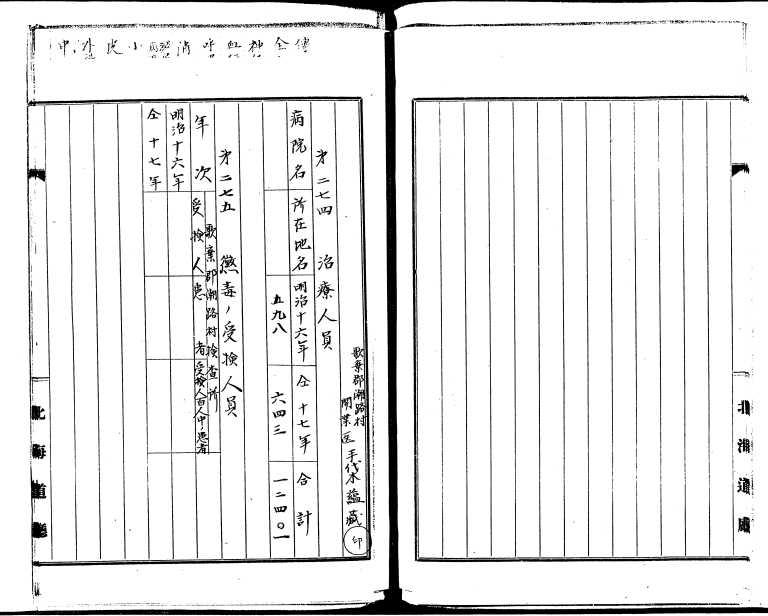 北海道廳
歌棄郡潮路村
開業医 手代木蘊藏 印
第二七四 治療人員
病院名 所在地名 明治十六年 仝十七年 合計
五九八 六四三 一二四〇一
第二七五 黴毒ノ受検人員
年次 歌棄郡潮路村検査所
受検人 患者 受検人百人中ノ患者
明治十六年
仝十七年
北海道廳